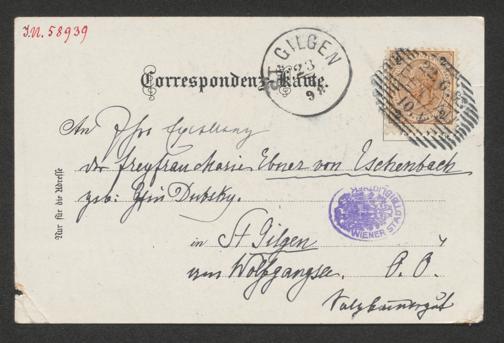 I.N. 58939
ST. GILGEN
23
98
Correspondenz-Karte
An Ihre
der Freyfrau Marie Ebner von Eschenbach
geb: Gfin Dubsky.
Nur für die Adresse
WIENER STADTBIBLIOTHEK
in St Gilgen
am Wolfgangsee. O. Ö.
Salzkammergut